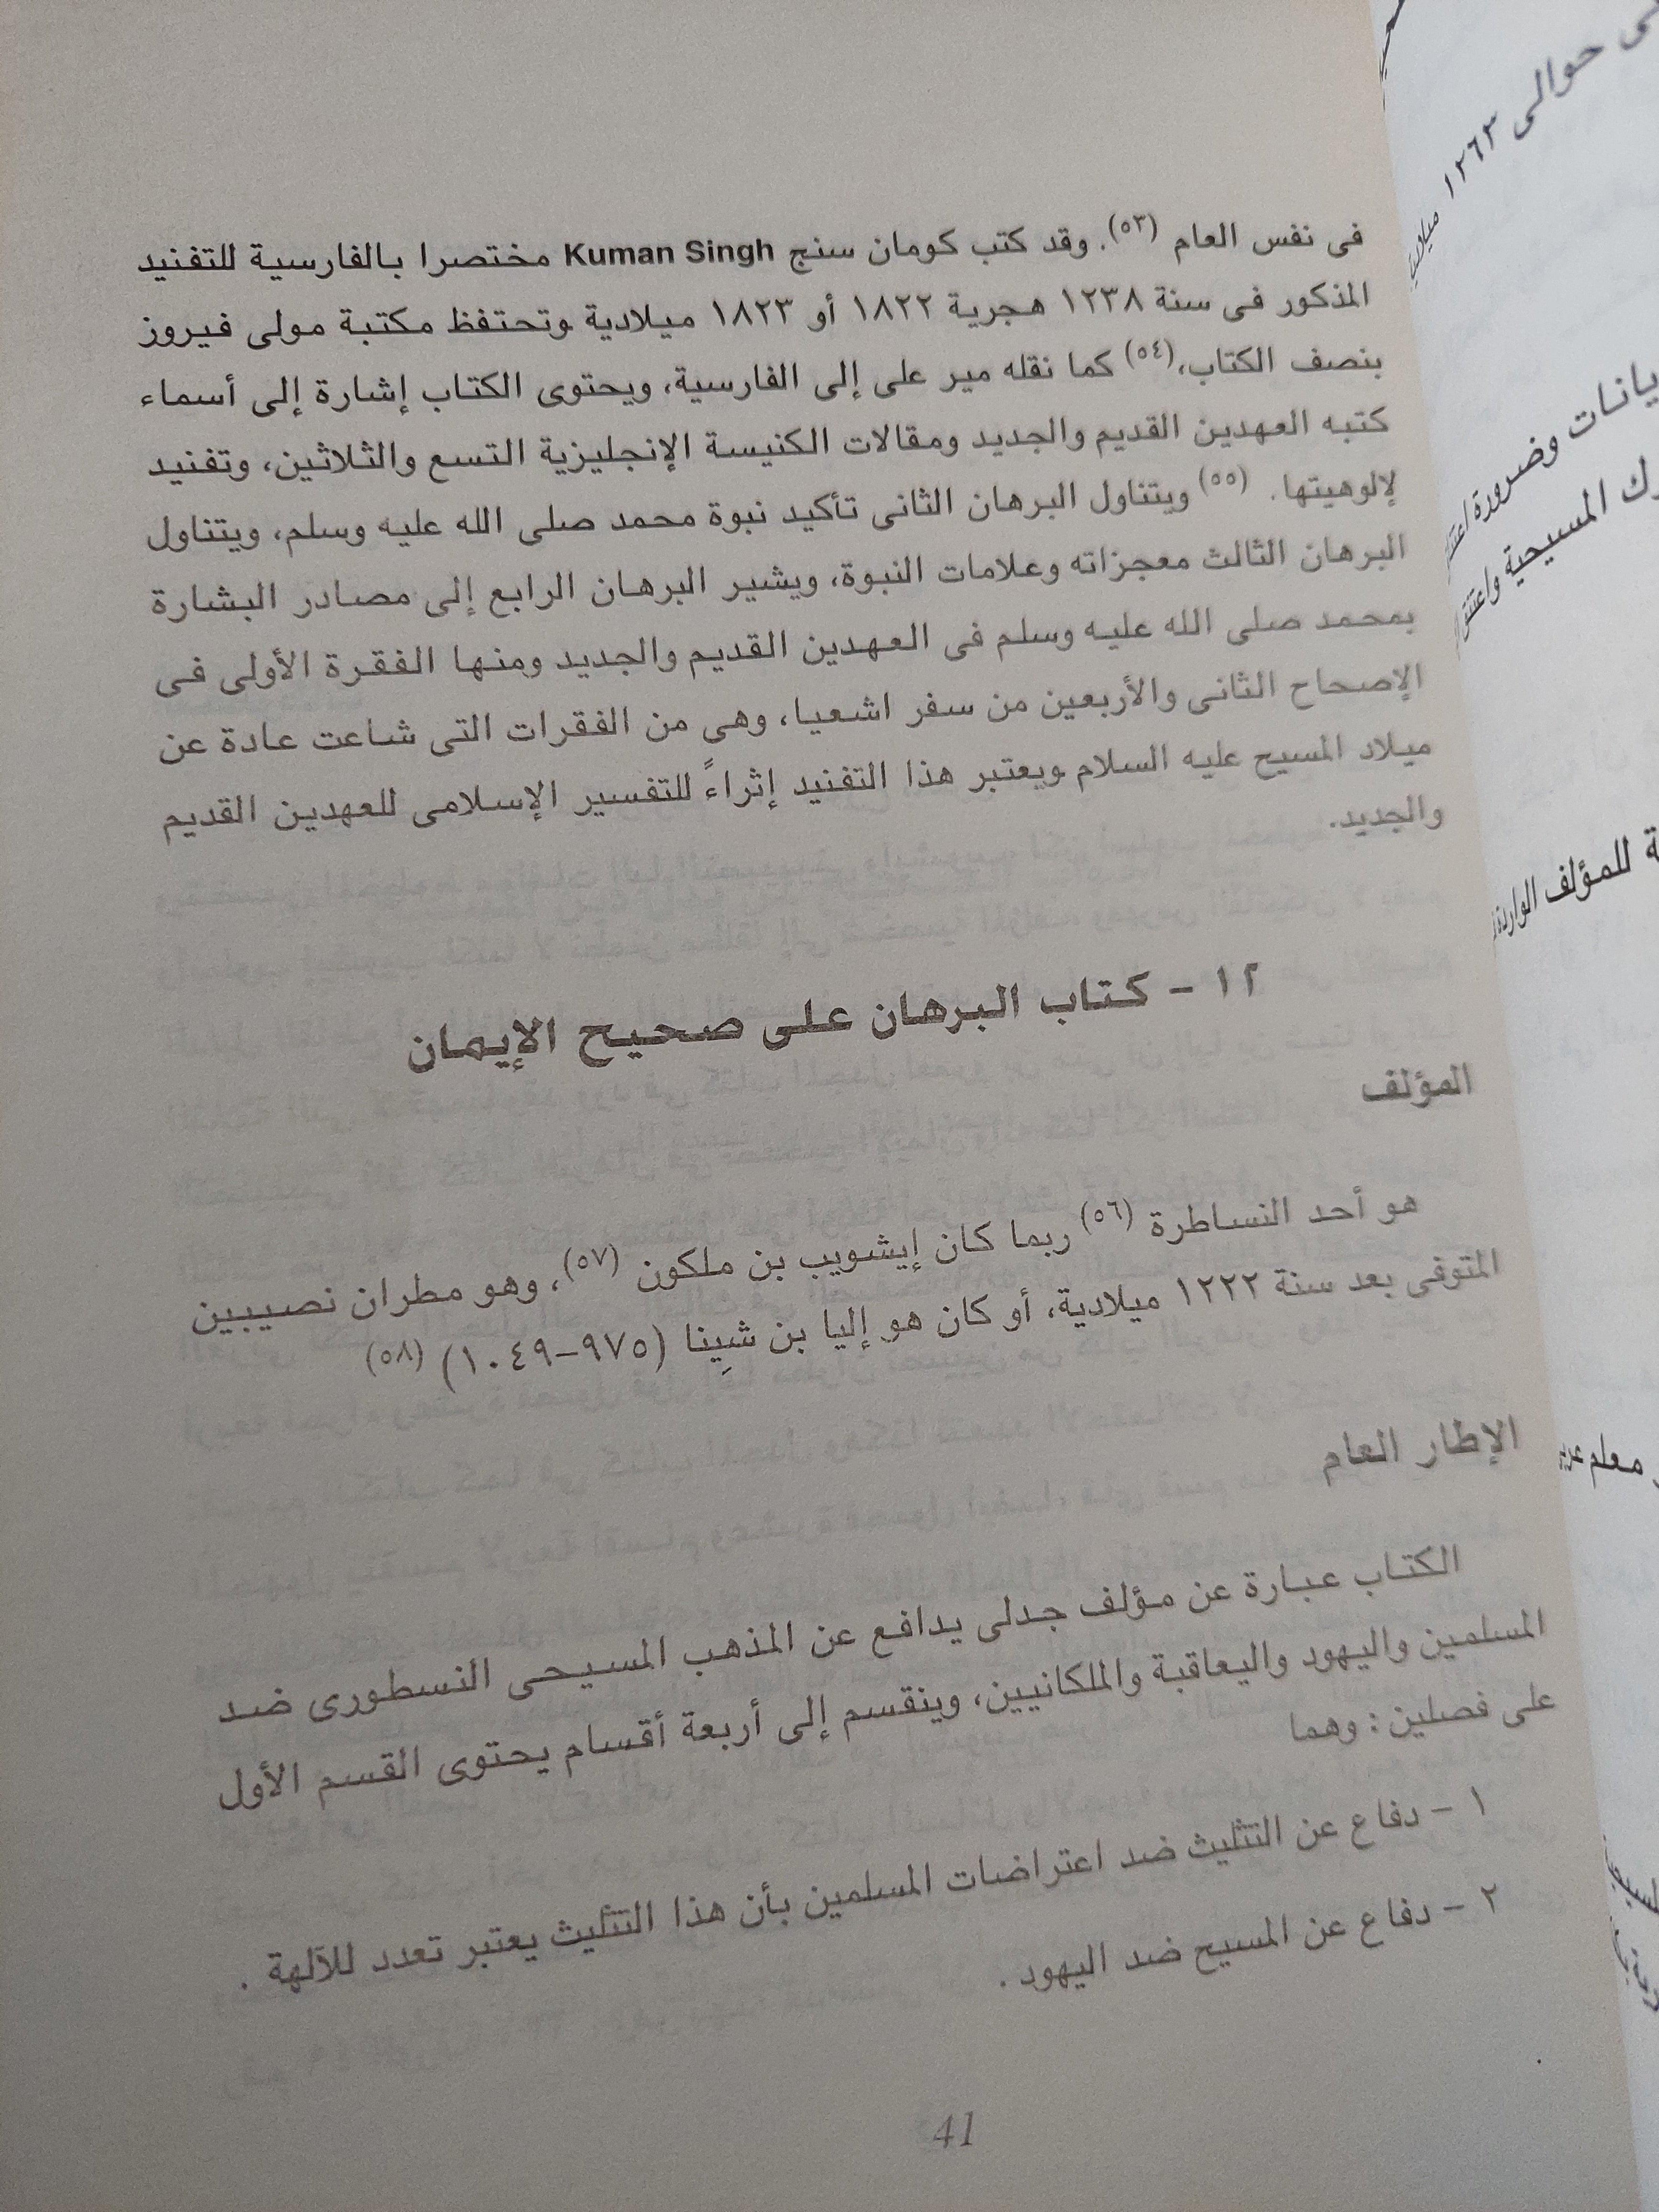 فى نفس العام (٥٣). وقد كتب كومان سنج Kuman Singh مختصرا بالفارسية للتفنيد
المذكور فى سنة ١٢٣٨ هجرية ١٨٢٢ أو ١٨٢٣ ميلادية وتحتفظ مكتبة مولى فيروز
بنصف الكتاب،(٥٤) كما نقله مير على إلى الفارسية، ويحتوى الكتاب إشارة إلى أسماء
كتبه العهدين القديم والجديد ومقالات الكنيسة الإنجليزية التسع والثلاثين، وتفنيد
لإلوهيتها. (٥٥) ويتناول البرهان الثانى تأكيد نبوة محمد صلى الله عليه وسلم، ويتناول
البرهان الثالث معجزاته وعلامات النبوة، ويشير البرهان الرابع إلى مصادر البشارة
بمحمد صلى الله عليه وسلم فى العهدين القديم والجديد ومنها الفقرة الأولى فى
الإصحاح الثانى والأربعين من سفر اشعيا، وهى من الفقرات التى شاعت عادة عن
ميلاد المسيح عليه السلام ويعتبر هذا التفنيد إثراءً للتفسير الإسلامى للعهدين القديم
والجديد.
١٢ - كتاب البرهان على صحيح الإيمان
المؤلف
هو أحد النساطرة (٥٦) ربما كان إيشويب بن ملكون (٥٧)، وهو مطران نصيبين
المتوفى بعد سنة ١٢٢٢ ميلادية، أو كان هو إليا بن شِينا (٩٧٥-١٠٤٩) (٥٨)
الإطار العام
الكتاب عبارة عن مؤلف جدلى يدافع عن المذهب المسيحى النسطورى ضد
المسلمين واليهود واليعاقبة والملكانيين، وينقسم إلى أربعة أقسام يحتوى القسم الأول
على فصلين : وهما
١ - دفاع عن التثليث ضد اعتراضات المسلمين بأن هذا التثليث يعتبر تعدد للآلهة .
٢ - دفاع عن المسيح ضد اليهود .
41
حوالى ١٢٦٣ ميلادية
وضرورة
المسيحية
للمؤلف الواردة
معلم